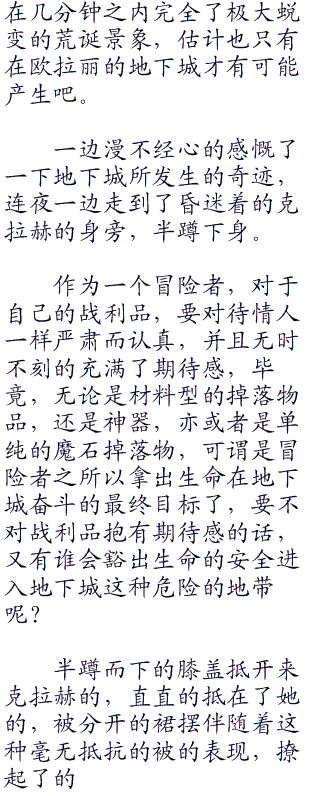 在几分钟之内完全了极大蜕
变的荒诞景象，估计也只有
在欧拉丽的地下城才有可能
产生吧。
一边漫不经心的感慨了
一下地下城所发生的奇迹，
连夜一边走到了昏迷着的克
拉赫的身旁，半蹲下身。
作为一个冒险者，对于
自己的战利品，要对待情人
一样严肃而认真，并且无时
不刻的充满了期待感，毕
竟，无论是材料型的掉落物
品，还是神器，亦或者是单
纯的魔石掉落物，可谓是冒
险者之所以拿出生命在地下
城奋斗的最终目标了，要不
对战利品抱有期待感的话，
又有谁会豁出生命的安全进
入地下城这种危险的地带
呢？
半蹲而下的膝盖抵开来
克拉赫的，直直的抵在了她
的，被分开的裙摆伴随着这
种毫无抵抗的被的表现，撩
起了的